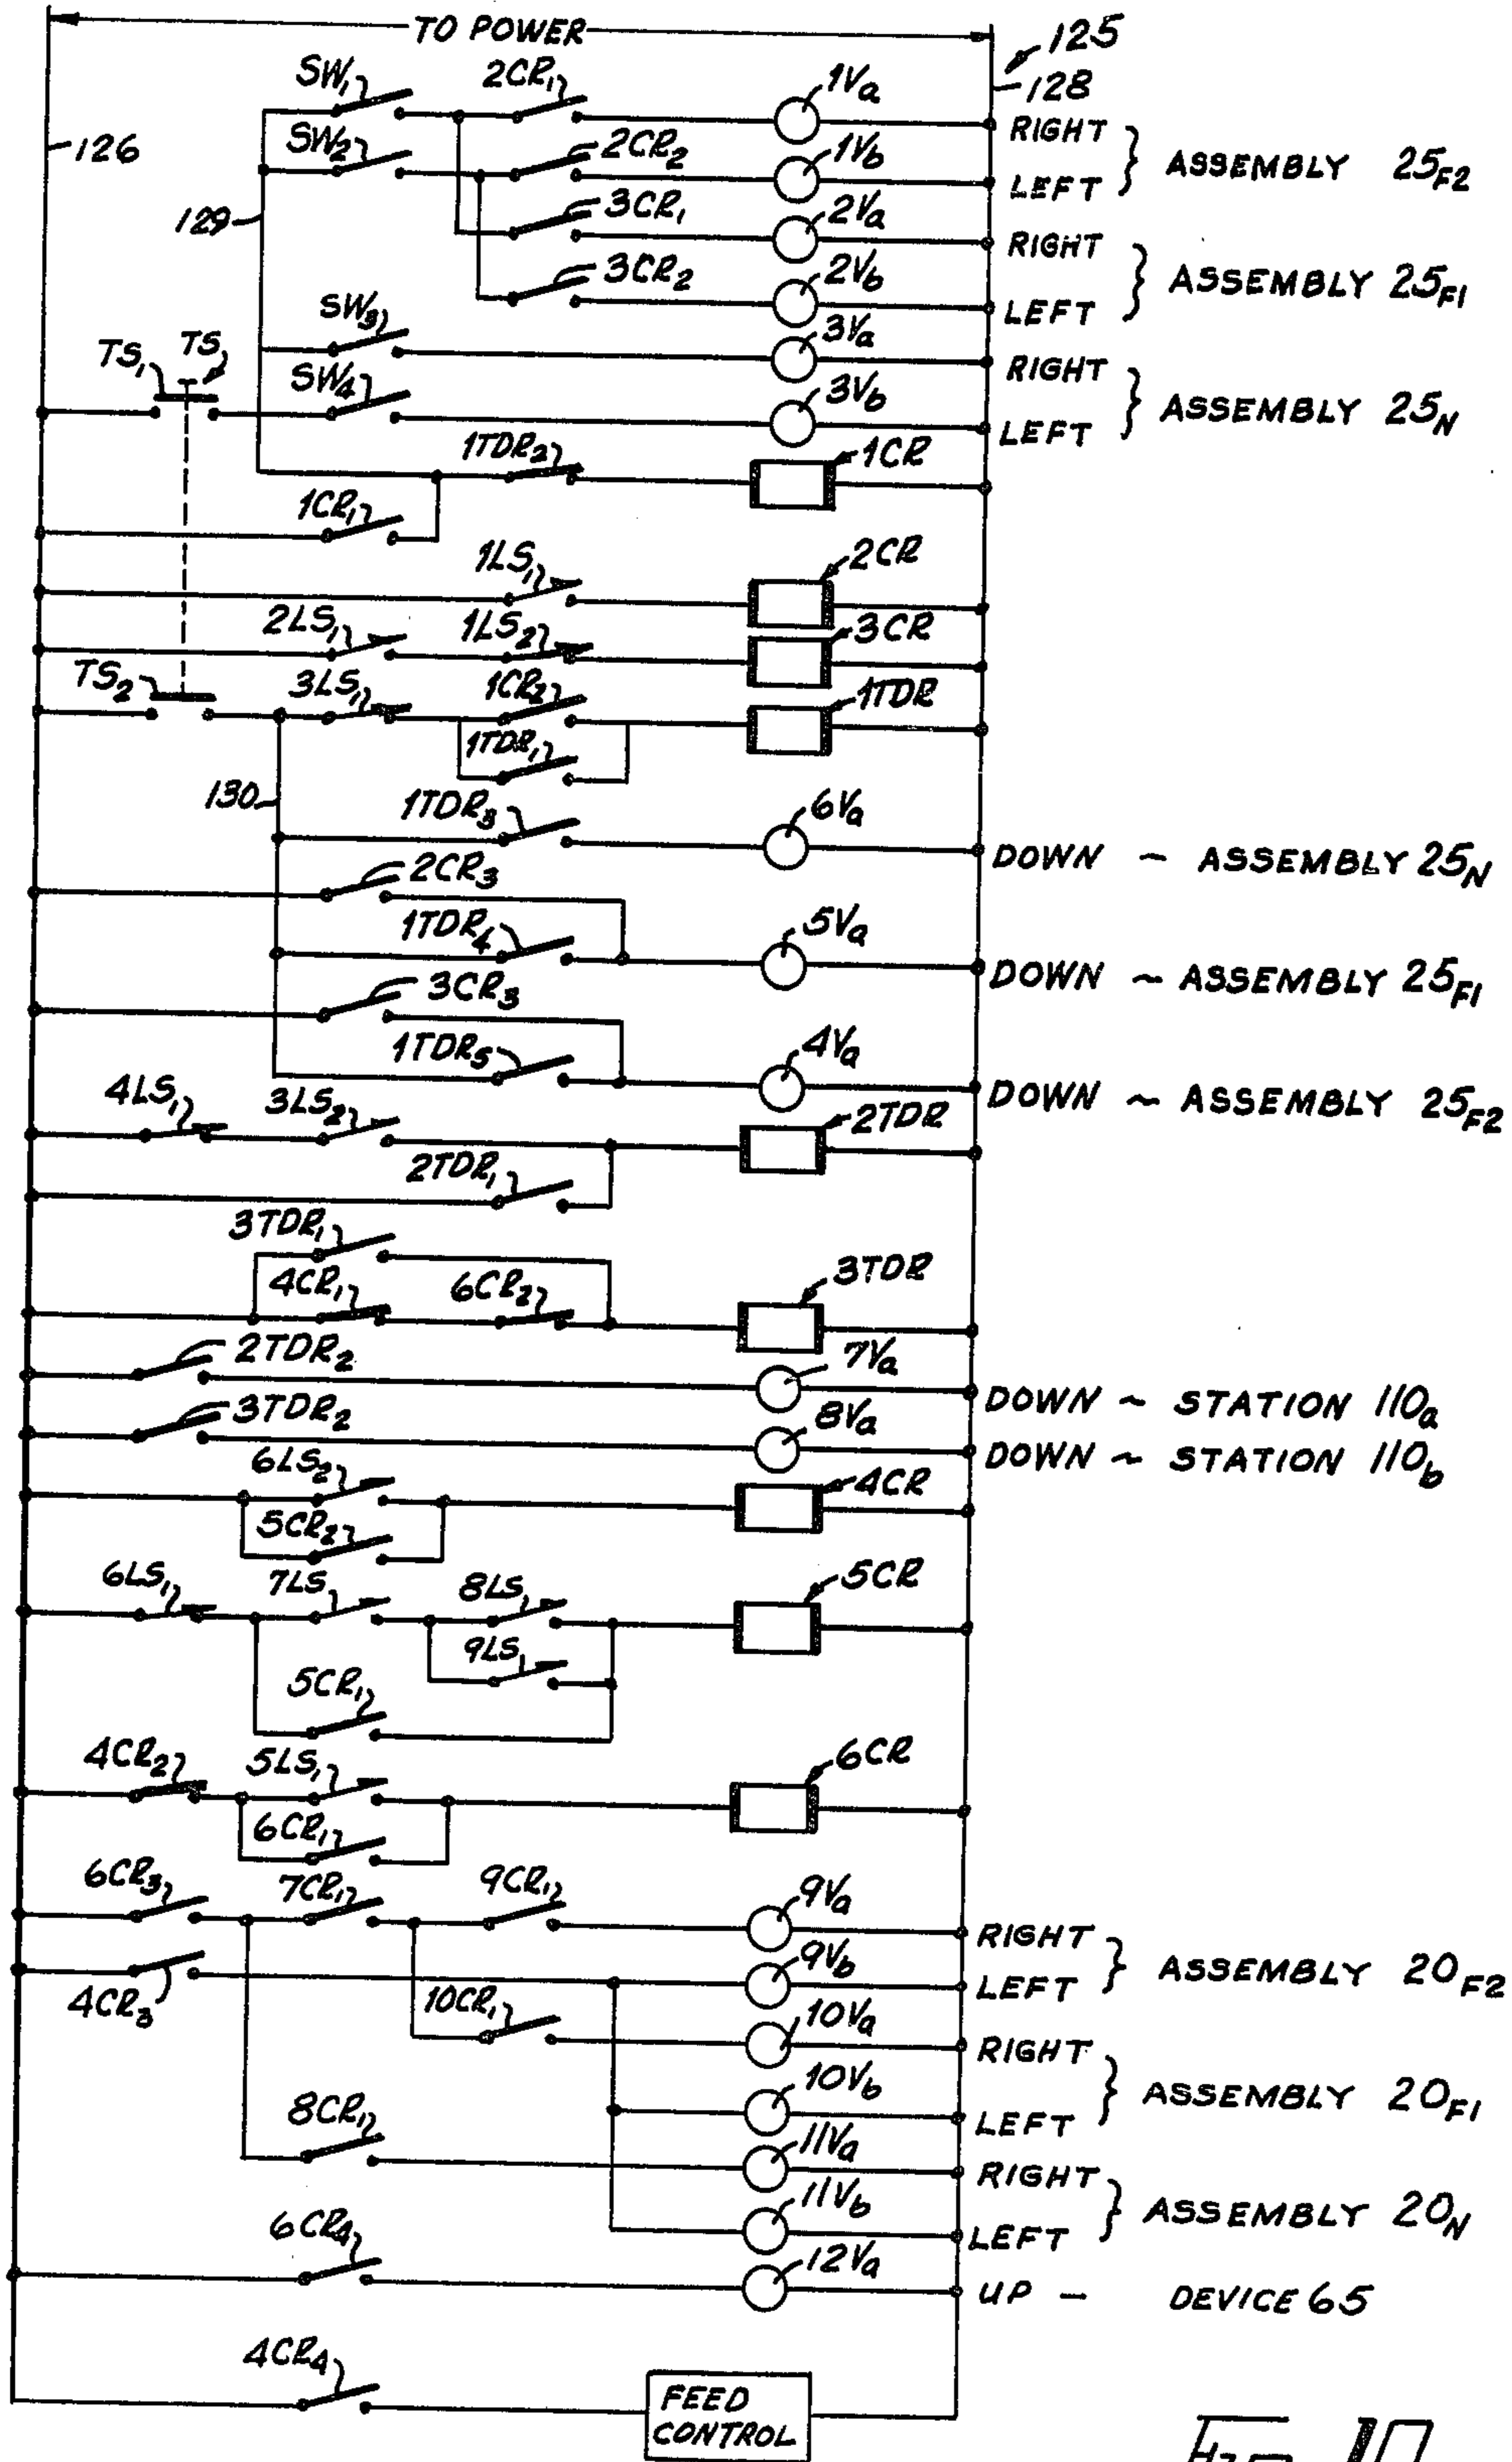 TO POWER
125
128
126
SW1 2CR1 1Va RIGHT
SW2 2CR2 1Vb LEFT } ASSEMBLY 25F2
129 3CR1 2Va RIGHT
3CR2 2Vb LEFT } ASSEMBLY 25F1
SW3 3Va RIGHT
TS1 TS SW4 3Vb LEFT } ASSEMBLY 25N
1TDR2 1CR
1CR1
1LS1 2CR
2LS1 1LS2 3CR
TS2 3LS1 1CR2 1TDR
1TDR1
130
1TDR3 6Va DOWN ~ ASSEMBLY 25N
2CR3
1TDR4 5Va DOWN ~ ASSEMBLY 25F1
3CR3
1TDR5 4Va DOWN ~ ASSEMBLY 25F2
4LS1 3LS2 2TDR
2TDR1
3TDR1
4CR1 6CR2 3TDR
2TDR2 7Va DOWN ~ STATION 110a
3TDR2 8Va DOWN ~ STATION 110b
6LS2 4CR
5CR2
6LS1 7LS1 8LS1 5CR
9LS1
5CR1
4CR2 5LS1 6CR
6CR1
6CR3 7CR1 9CR1 9Va RIGHT
4CR3 9Vb LEFT } ASSEMBLY 20F2
10CR1 10Va RIGHT
10Vb LEFT } ASSEMBLY 20F1
8CR1 11Va RIGHT
11Vb LEFT } ASSEMBLY 20N
6CR4 12Va UP - DEVICE 65
4CR4 FEED
CONTROL